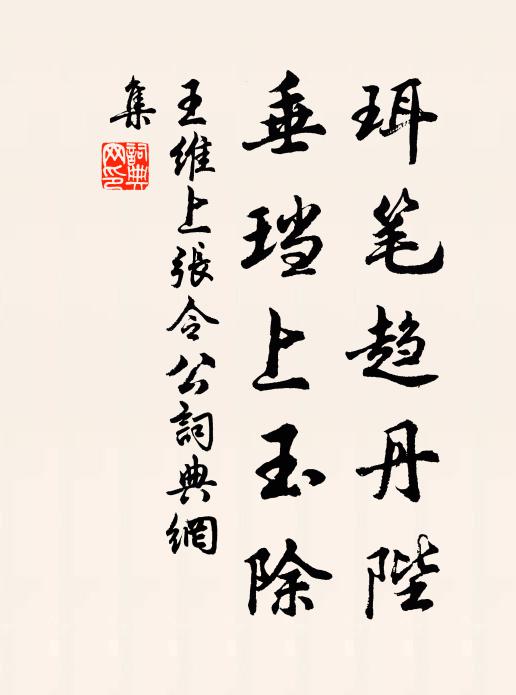 珥笔趋丹陛
垂珰上玉除
王维上張令公詞典網
集
詞典
网印